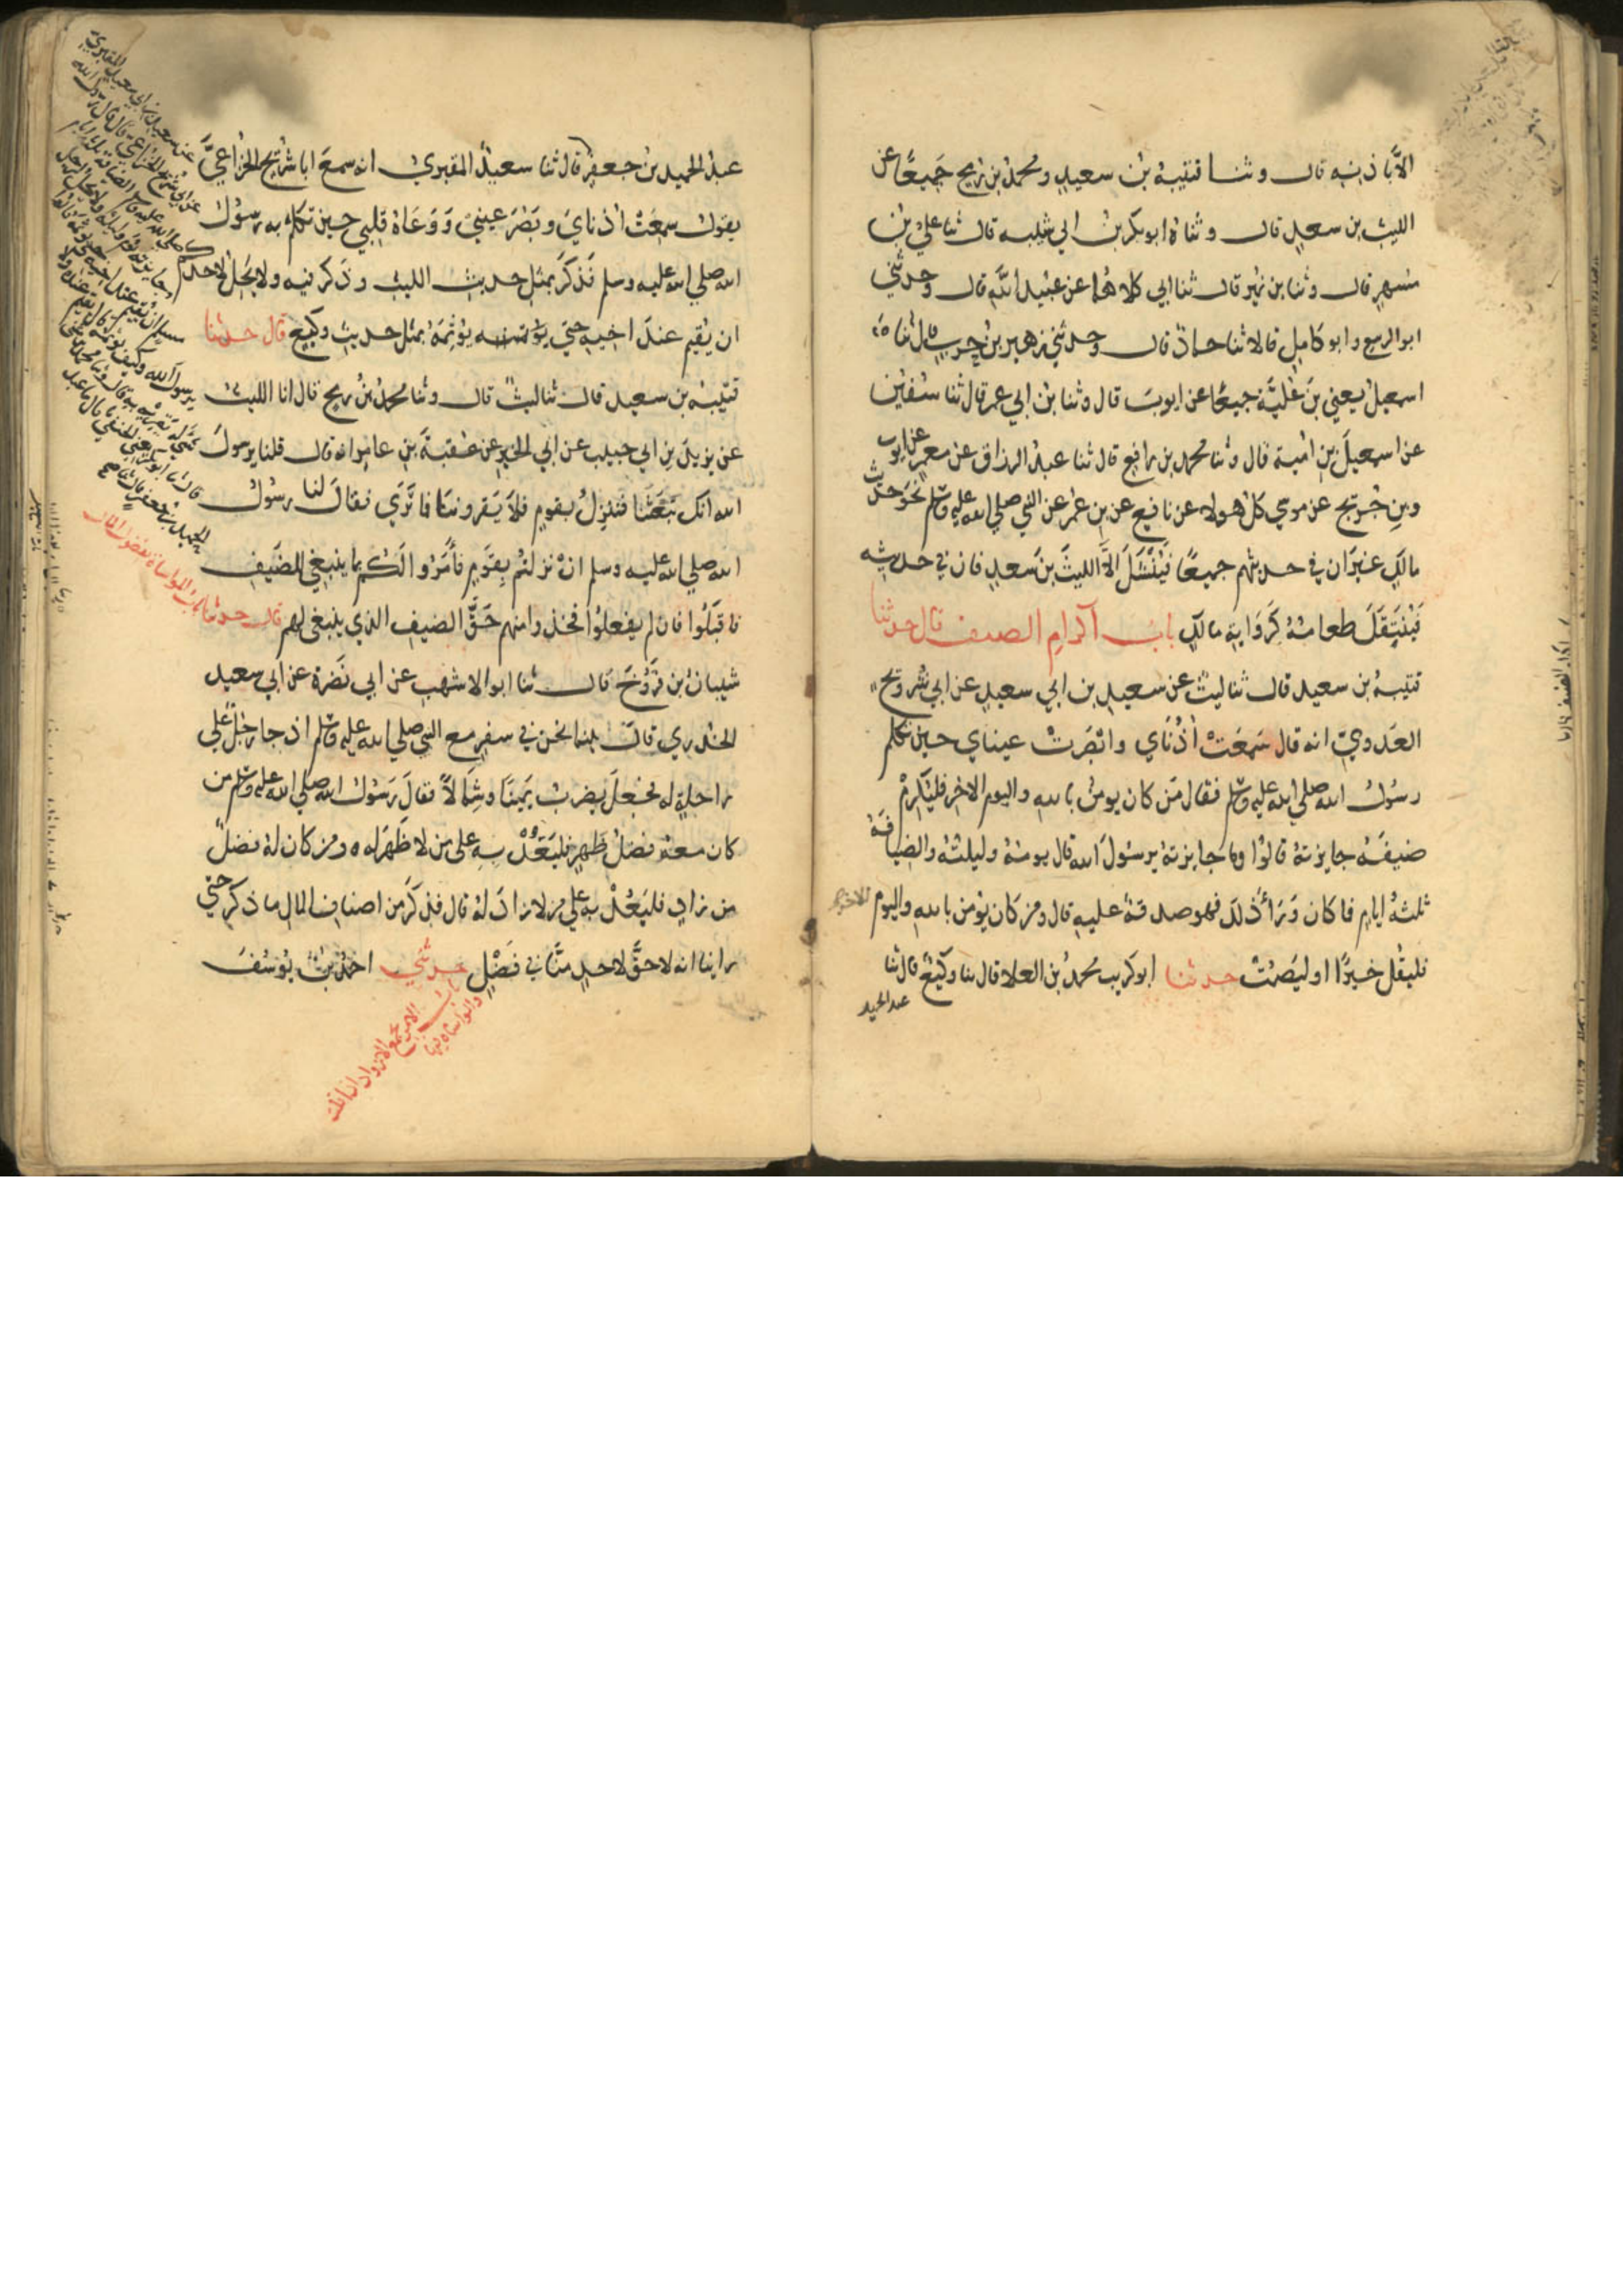 الا باذنه قال وثنا قتيبة بن سعيد ومحمد بن رمح جميعا عن
الليث بن سعد قال وثناه ابو بكر بن ابي شيبه قال ثنا علي بن
مسهر قال وثنا بن نمير قال ثنا ابي كلاهما عن عبيد الله قال وحدثني
ابو الربيع وابو كامل قالا ثنا حماد قال وحدثني زهير بن حرب قال ثنا
اسمعيل يعني بن علية جميعا عن ايوب قال وثنا بن ابي عمر قال ثنا سفين
عن اسمعيل بن امية قال وثنا محمد بن رافع قال ثنا عبد الرزاق عن معمر عن ايوب
وبن جريج عن موسي كل هولاء عن نافع عن بن عمر عن النبي صلي الله عليه وسلم نحو حديث
مالك غير ان في حديثهم جميعا فينتثل الا الليث بن سعد فان في حديثه
فينتقل طعامه كرواية مالك باب اكرام الضيف قال حدثنا
قتيبة بن سعيد قال ثنا ليث عن سعيد بن ابي سعيد عن ابي شريح
العدوي انه قال سمعت اذناي وابصرت عيناي حين تكلم
رسول الله صلي الله عليه وسلم فقال من كان يومن بالله واليوم الاخر فليكرم
ضيفه جايزته قالوا وما جايزته يرسول الله قال يومه وليلته والضيافة
ثلثة ايام فا كان وراء ذلك فهو صدقة عليه قال ومن كان يومن بالله واليوم الاخر
فليقل خيرا او ليصمت حدثنا ابو كريب محمد بن العلا قال ثنا وكيع قال ثنا
عبد الحميد
عبد الحميد بن جعفر قال ثنا سعيد المقبري انه سمع ابا شريح الخزاعي
يقول سمعت اذناي وبصر عيني ووعاه قلبي حين تكلم به رسول
الله صلي الله عليه وسلم فذكر بمثل حديث الليث وذكر فيه ولا يحل لاحدكم
ان يقيم عند اخيه حتي يوثمه بمثل حديث وكيع قال حدثنا
قتيبة بن سعيد قال ثنا ليث قال وثنا محمد بن رمح قال انا الليث
عن يزيد بن ابي حبيب عن ابي الخير عن عقبة بن عامر انه قال قلنا يرسول
الله انك تبعثنا فننزل بقوم فلا يقروننا فا تري فقال لنا رسول
الله صلي الله عليه وسلم ان نزلتم بقوم فامروا لكم بما ينبغي للضيف
فاقبلوا فان لم يفعلوا فخذوا منهم حق الضيف الذي ينبغي لهم قال حدثنا
باب المواساة بفضول المال
شيبان بن فروخ قال ثنا ابو الاشهب عن ابي نضرة عن ابي سعيد
الخدري قال بينما نحن في سفر مع النبي صلي الله عليه وسلم اذ جا رجل علي
راحلة له فجعل يضرب يمينا وشمالا فقال رسول الله صلي الله عليه وسلم من
كان معه فضل ظهر فليعد به علي من لا ظهر له ومن كان له فضل
من زاد فليعد به علي من لا زاد له قال فذكر من اصناف المال ما ذكر حتي
راينا انه لا حق لاحد منا في فضل حدثني احمد بن يوسف
باب الامر بجمع الازواد اذا قلت
والمواساة فيها
عن سعيد بن ابي سعيد المقبري
عن ابي شريح الخزاعي قال قال رسول الله
صلي الله عليه وسلم الضيافة ثلثة ايام